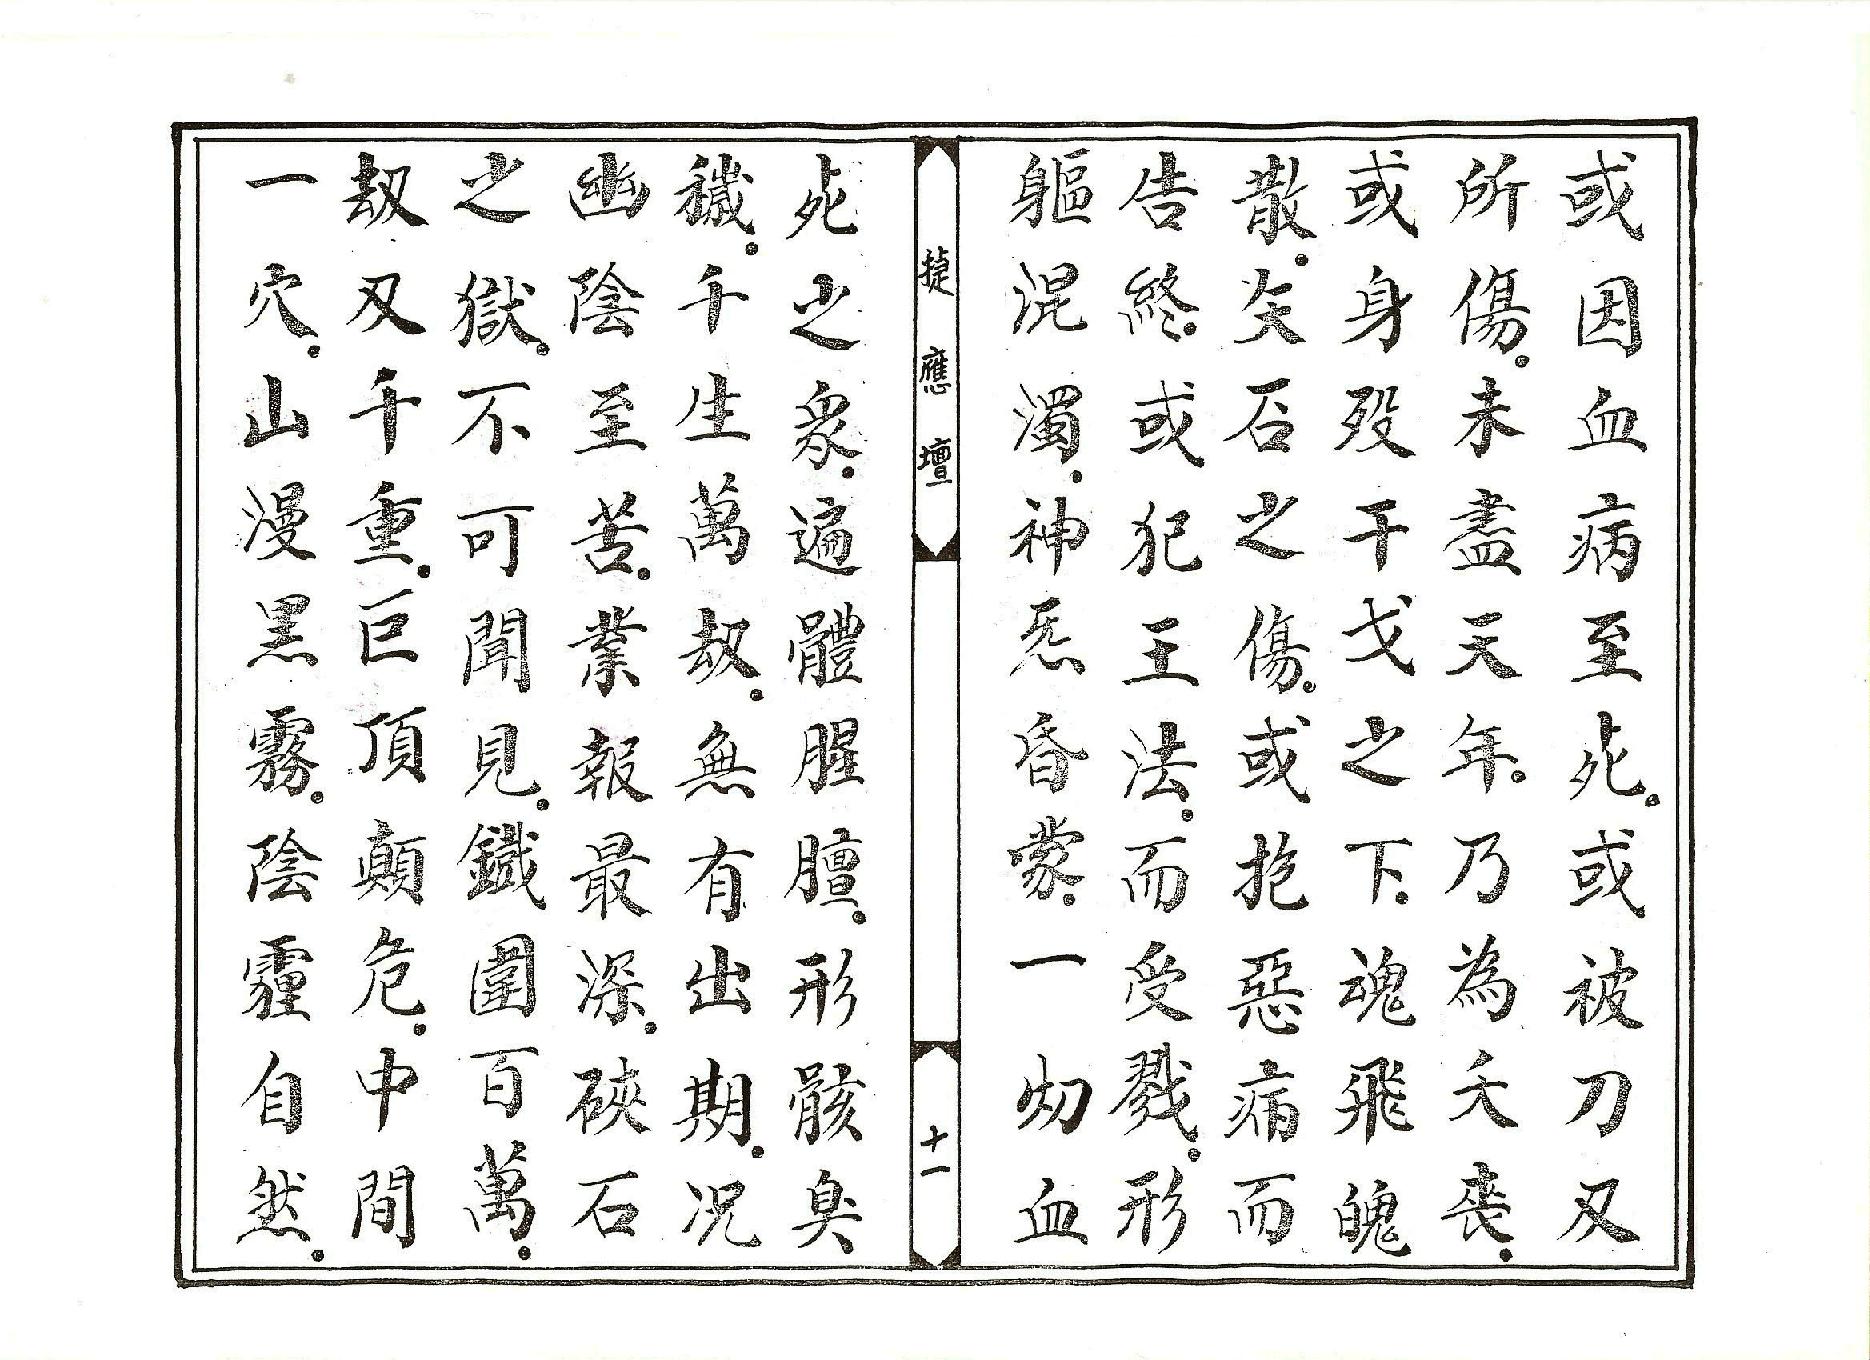 或因血病至死。或被刀刃
所傷。未盡天年。乃為夭喪。
或身歿干戈之下。魂飛魄
散。矢石之傷。或抱惡病而
告終。或犯王法。而受戮。形
軀混濁。神炁昏蒙。一切血
捷應壇
十一
死之衆。遍體腥膻。形骸臭
穢。千生萬劫。無有出期。况
幽陰至苦。業報最深。硤石
之獄。不可聞見。鐵圍百萬。
劫刃千重。巨頂顛危。中間
一穴。山漫黑霧。陰霾自然。